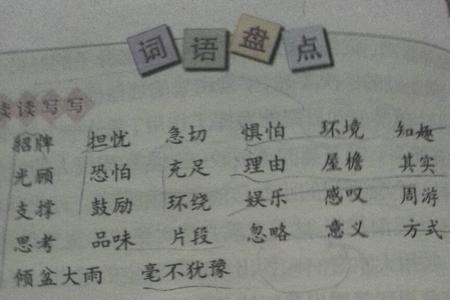 词语盘点
读读写写
招牌 担忧 急切 惧怕 环境 知趣
光顾 恐怕 充足 理由 屋檐 其实
支撑 鼓励 环绕 娱乐 感叹 周游
思考 品味 片段 忽略 意义 方式
倾盆大雨 毫不犹豫